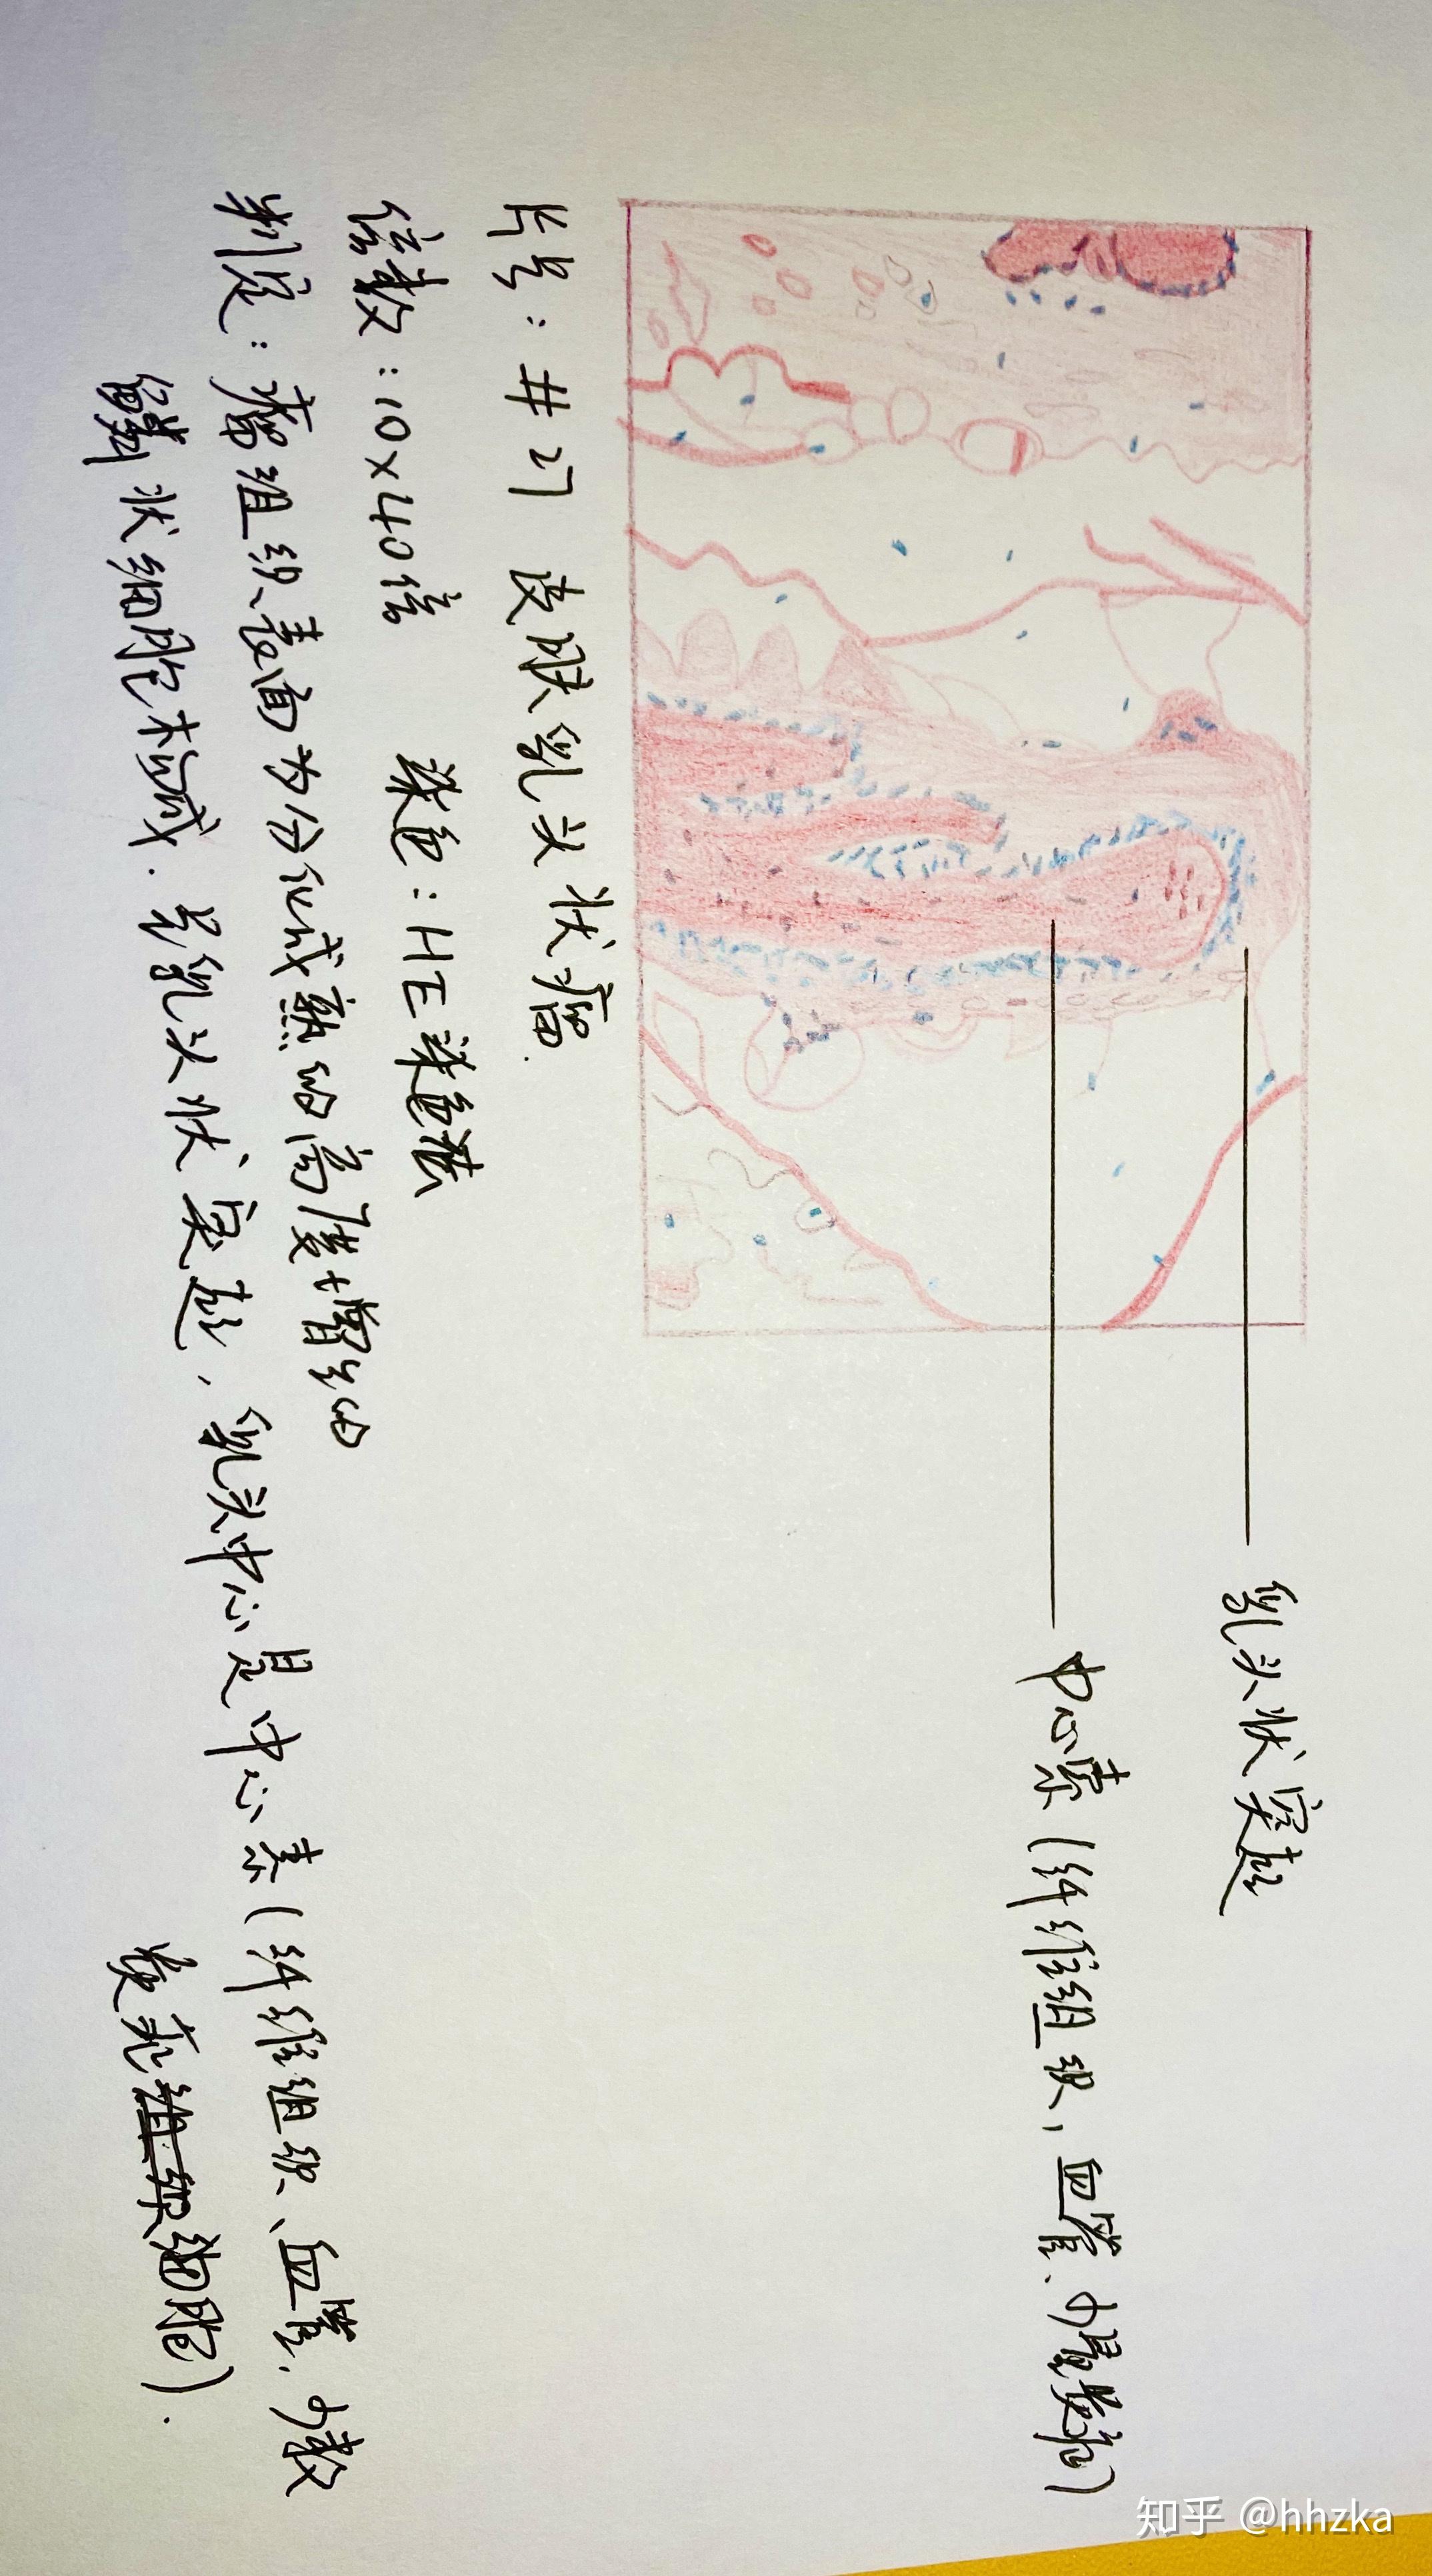 乳头状突起
中心索(纤维组织,血管、少量炎症)
片号:#27 皮肤乳头状瘤.
倍数:10×40倍 染色:HE染色法
判定:瘤组织表面为分化成熟的高度增生的
鳞状细胞构成.呈乳头状突起,乳头中心是中心索(纤维组织、血管,少数
炎症细胞).
知乎 @hhzka